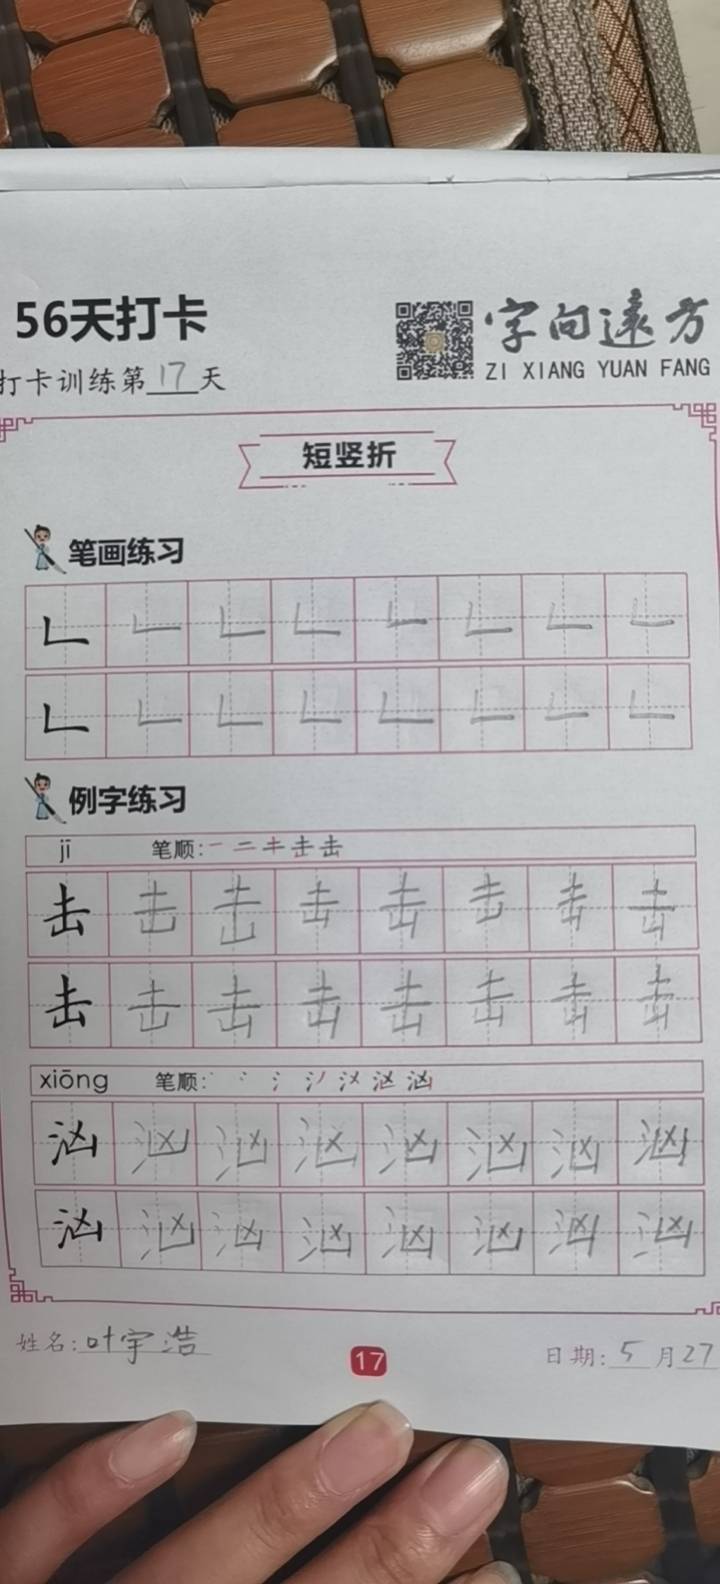 56天打卡
字向遠方
ZI XIANG YUAN FANG
打卡训练第17天
短竖折
笔画练习
𠃊 𠃊 𠃊 𠃊 𠃊 𠃊 𠃊 𠃊
𠃊 𠃊 𠃊 𠃊 𠃊 𠃊 𠃊 𠃊
例字练习
jī 笔顺:
击 击 击 击 击 击 击 击
击 击 击 击 击 击 击 击
xiōng 笔顺:
汹 汹 汹 汹 汹 汹 汹 汹
汹 汹 汹 汹 汹 汹 汹 汹
姓名:叶宇浩 17 日期:5月27